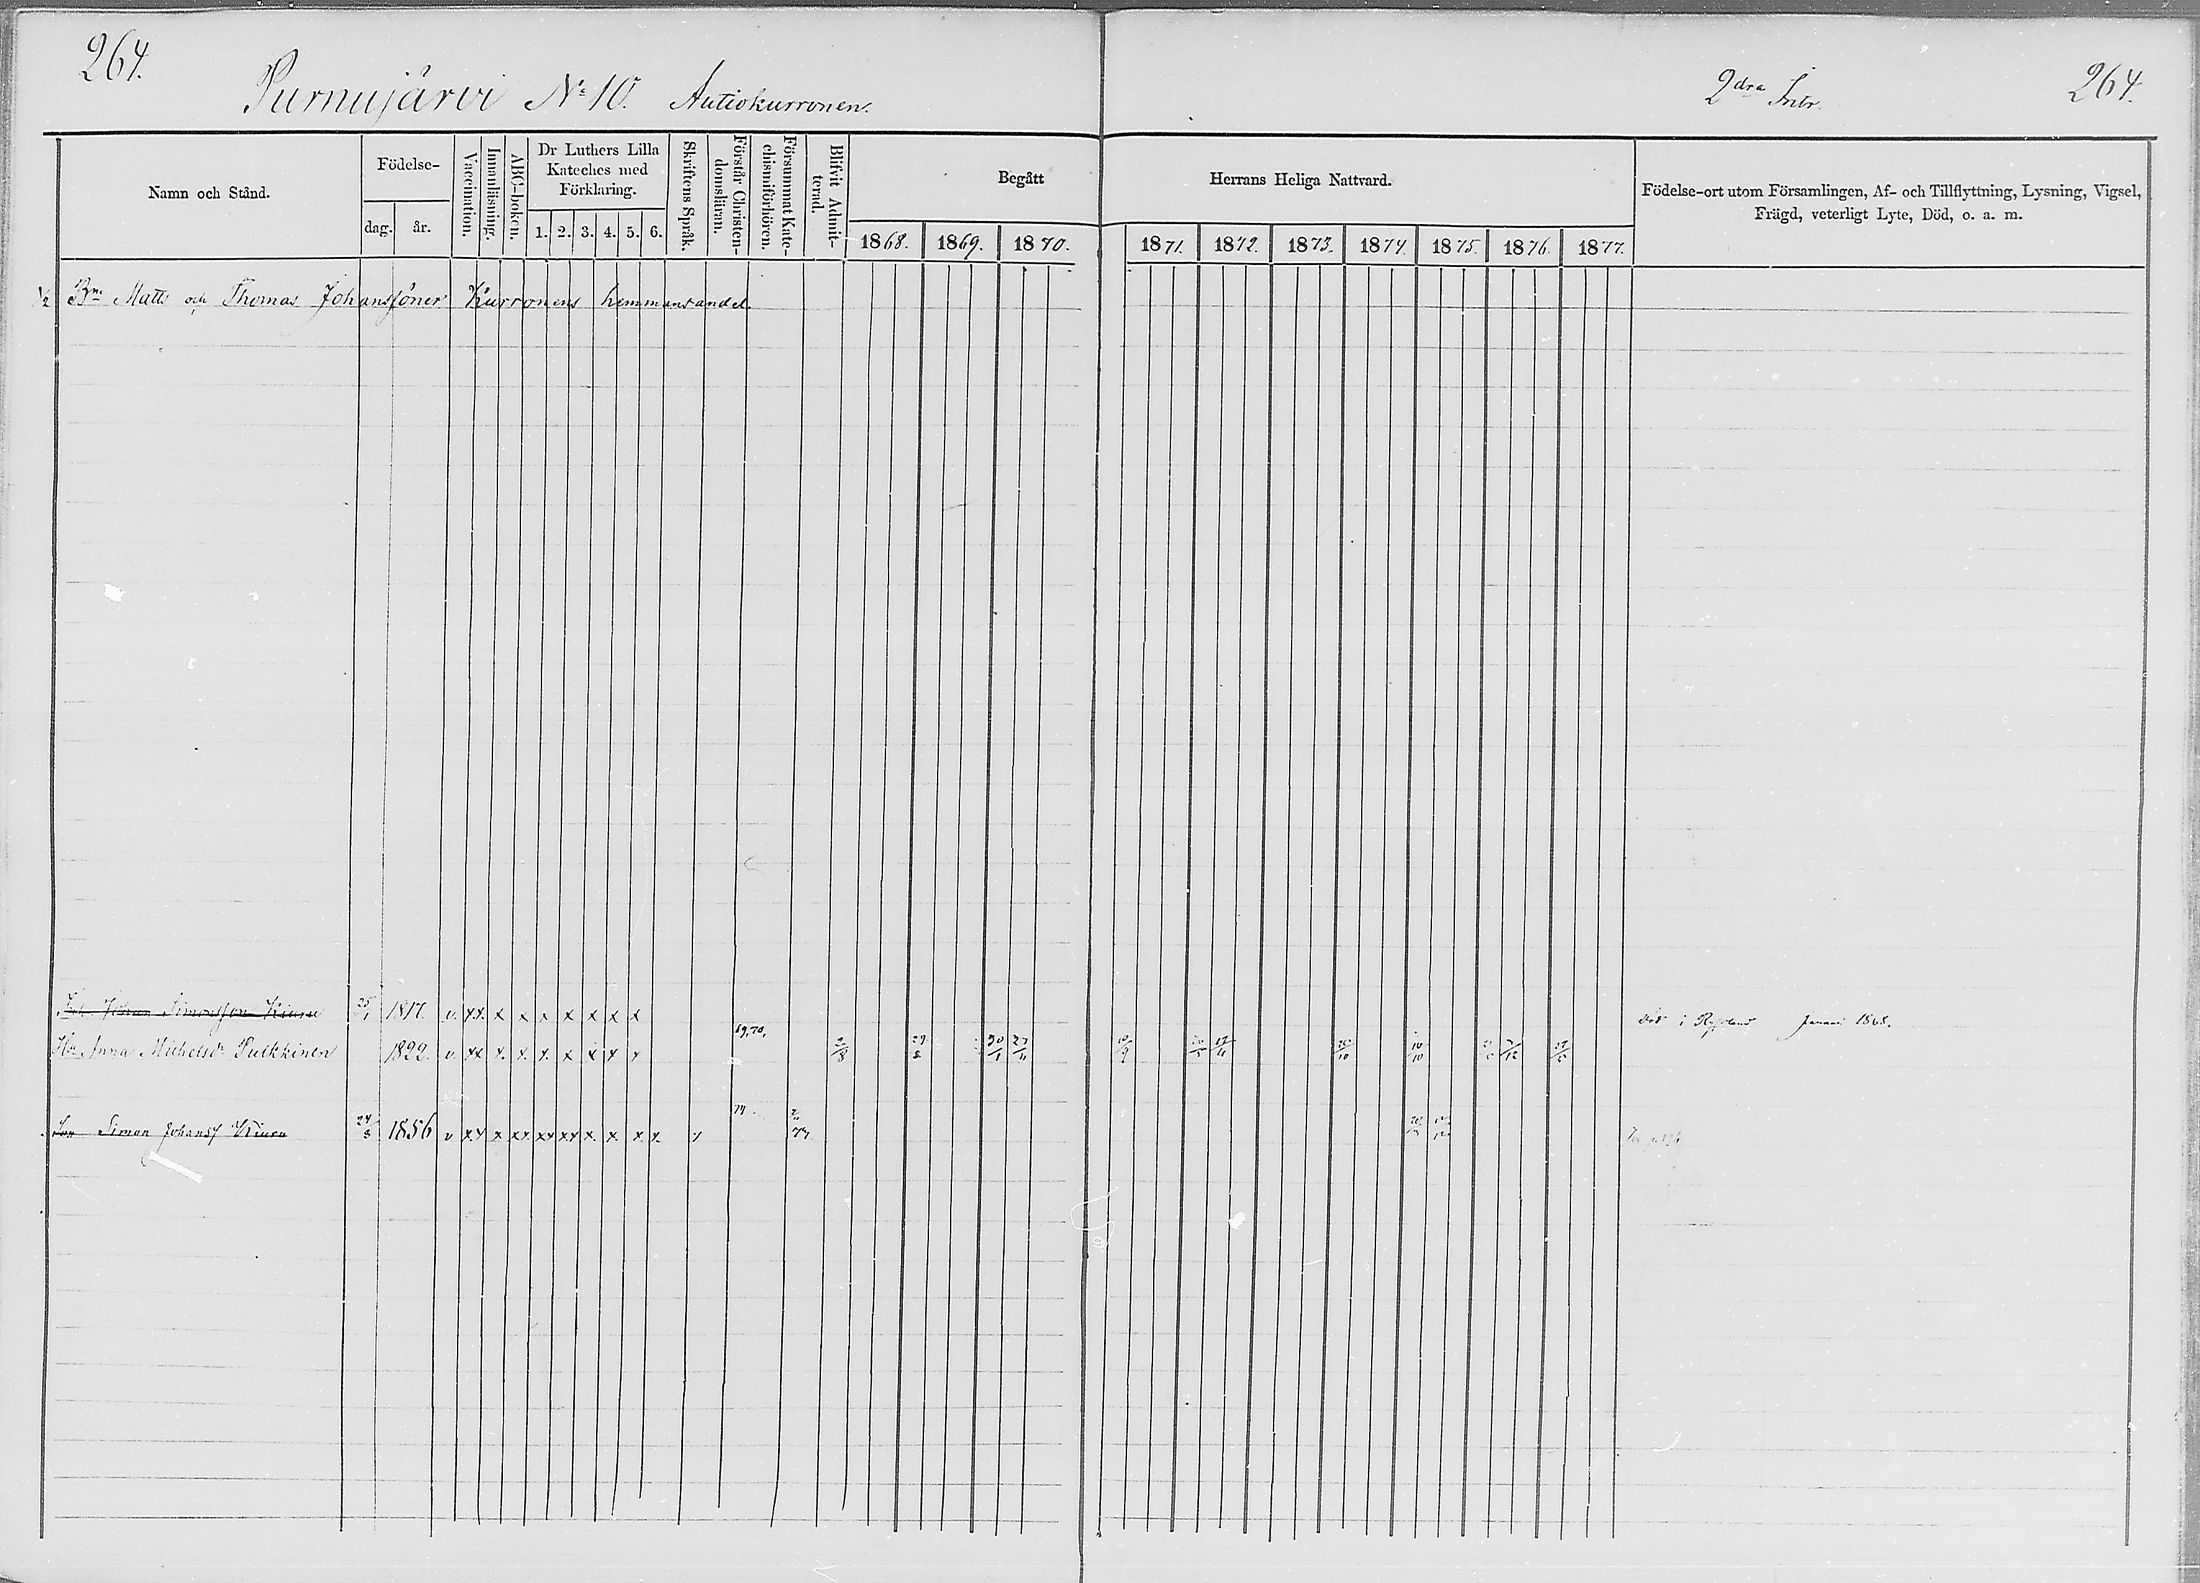 264.
Purnujärvi No 10. Autiokurronen.
2dra Intr.
264.
Namn och Stånd.
Födelse-
dag.
år.
Vaccination.
Innanläsning.
ABC-boken.
Dr Luthers Lilla
Kateches med
Förklaring.
1. 2. 3. 4. 5. 6.
Skriftens Språk.
Förstår Christen-
domsläran.
Försummat Kate-
chismiförhören.
Blifvit Admit-
terad.
Begått
Herrans Heliga Nattvard.
1868. 1869. 1870. 1871. 1872. 1873. 1874. 1875. 1876. 1877.
Födelse-ort utom Församlingen, Af- och Tillflyttning, Lysning, Vigsel,
Frägd, veterligt Lyte, Död, o. a. m.
1/2 Bne Matts och Thomas Johanssöner Kurronens hemmansandel.
Johan Simonsson Kiuru 25/1 1817. v. xx. x x x x x x x död i Ryssland Januari 1868.
69,70,
Hu Anna Michelsdr Pulkkinen 1822. v. xx x. x. x. x x x x 2/8 29/8 30/1 27/11 10/9 17/11 20/10 10/10 7/12
74
Son Simon Johanss Kiuru 24/3 1856 v xx x xx xx xx x. x x x x